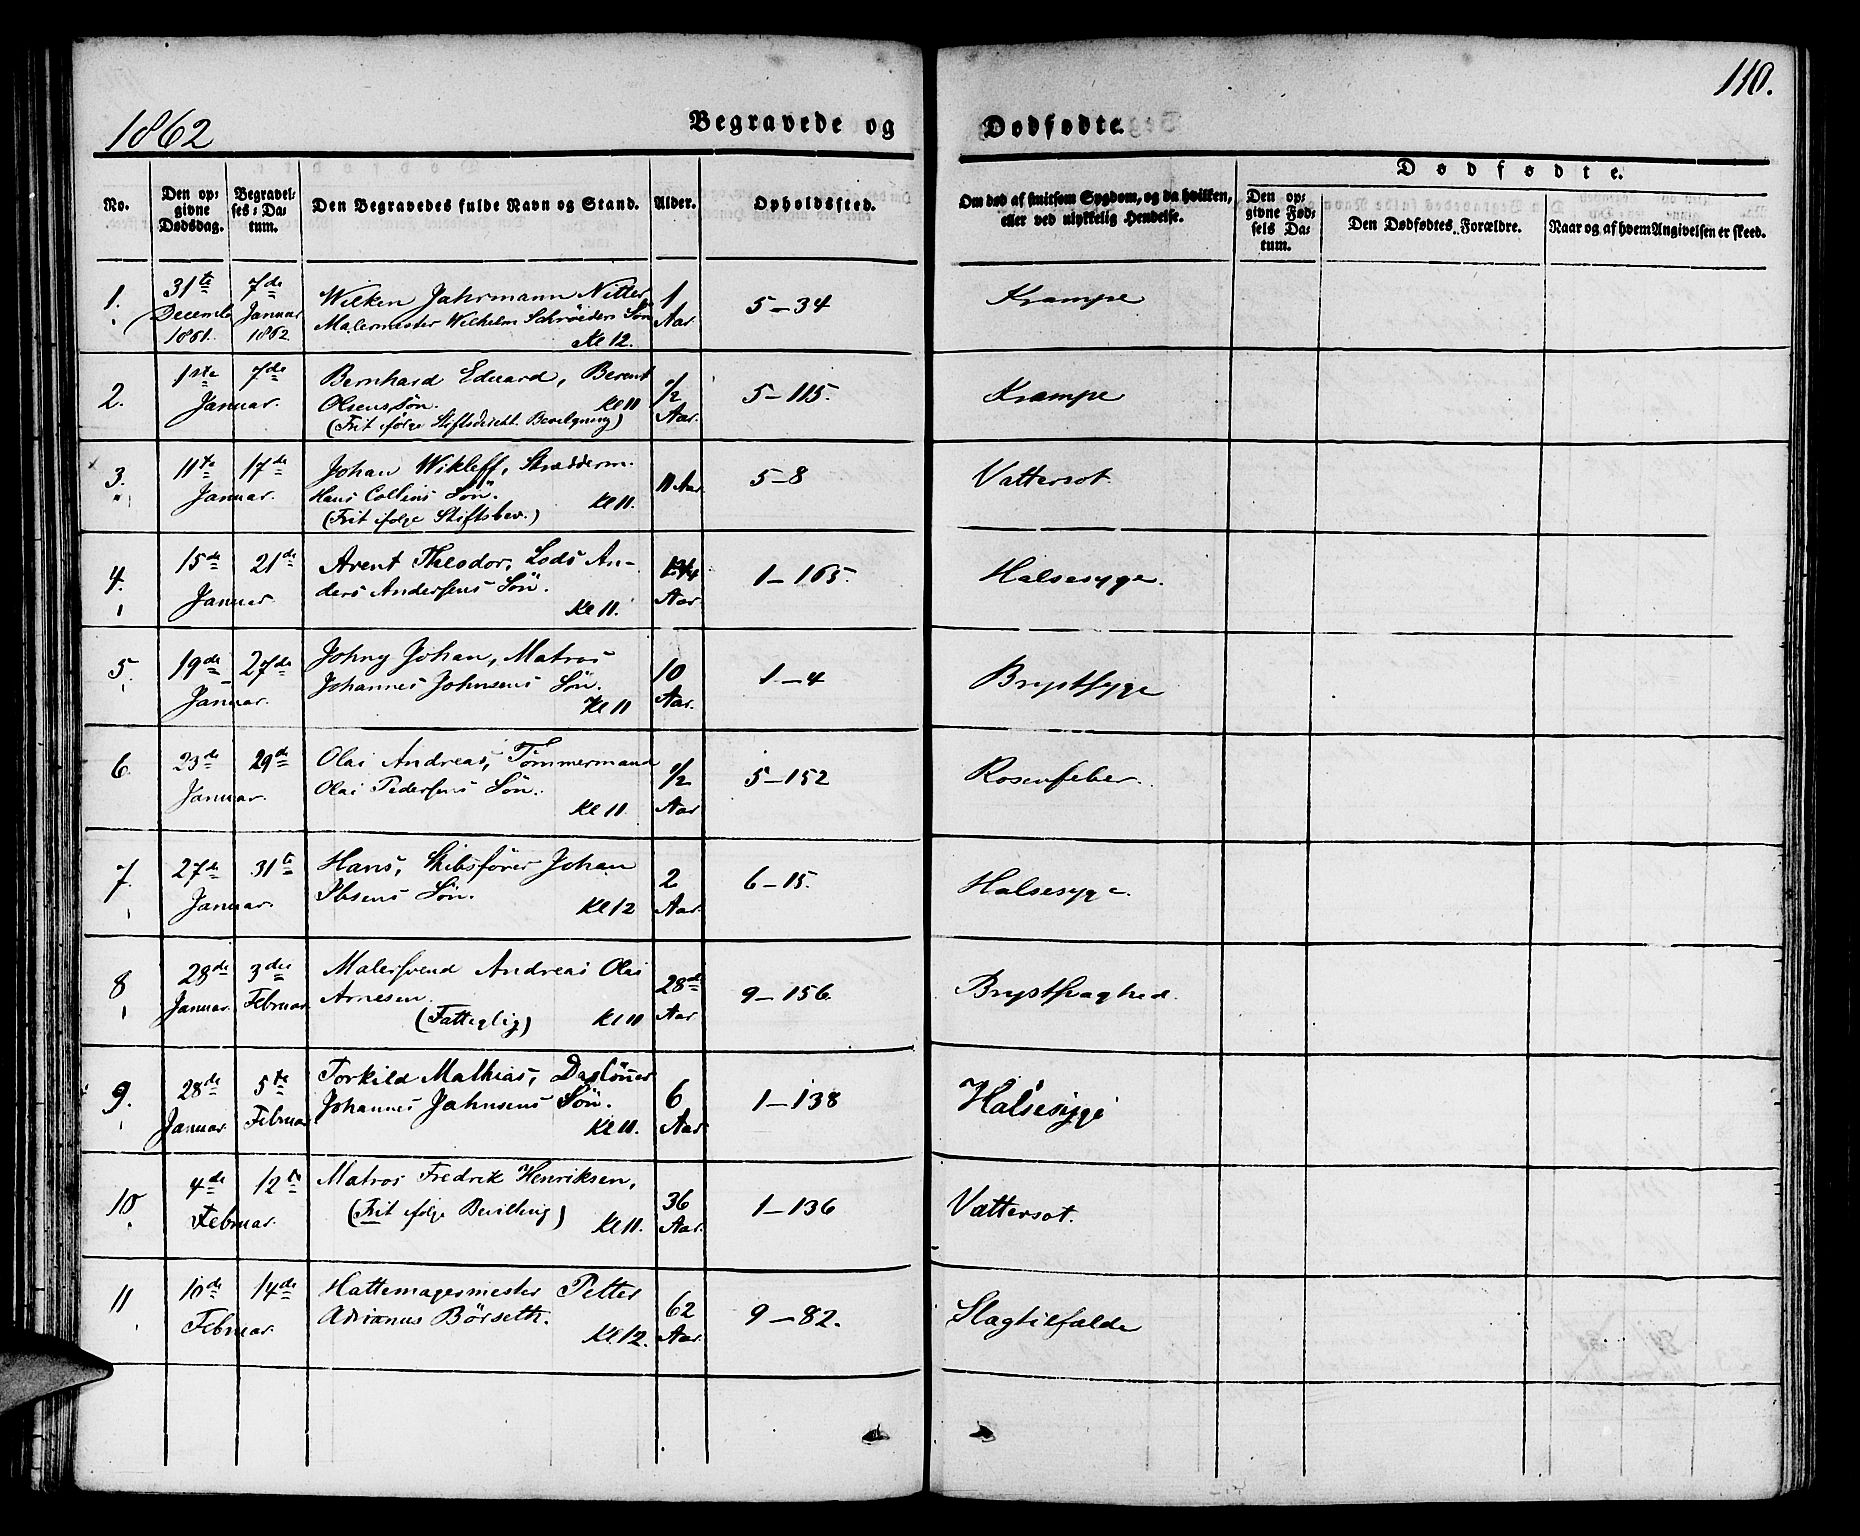 1862
Begravede og Dødfødte.
110.
No.
Den opgivne Dødsdag.
Begravelses-Datum.
Den Begravedes fulde Navn og Stand.
Alder.
Opholdssted.
Om død af smitsom Sygdom, og da hvilken, eller ved ulykkelig Hendelse.
Dødfødte.
Den opgivne Fødsels Datum.
Den Dødfødtes Forældre.
Naar og af hvem Angivelsen er skeed.
1. 31te 7de Wilken Jahrmann Nitter 1 5-34 Krampe
Decemb Januar Malermester Wilhelm Schrøeders Søn Aar
1861. 1862 Kl 12.
2. 1ste 7de Bernhard Eduard, Berent 1/2 5-115. Krampe
Januar. Olsens Søn. Kl 11 Aar.
(Frit ifølge Stiftsdirekt. Bevilgning)
3. 11te 17de Johan Wikleff, Skredderm. 11 Aar 5-8 Vattersot
Januar. Hans Collins Søn. Kl 11.
(Frit ifølge Stiftsbev.)
4. 15de 21de Arent Theodor, Lods An- 1-165. Halsesyge.
Januar. ders Andersens Søn. Aar.
Kl 11.
5. 19de 27de Johny Johan, Matros 10 1-4 Brystsyge
Januar. Johannes Johnsens Søn. Aar.
Kl 11
6. 23de 29de Olai Andreas, Tømmermand 1/2 5-152 Rosenfeber.
Januar. Olai Pedersens Søn. Aar
Kl 11.
7. 27de 31te Hans, Skibsfører Johan 2 6-15. Halsesyge.
Januar. Ibsens Søn. Kl 12 Aar.
8 28de 3die Malersvend Andreas Olai 28de 9-156. Brystsvaghed.
Januar. Februar Arnesen. Aar
(Fatteglig) Kl 11
9. 28de 5te Torkild Mathias, Dagløner 6 1-138 Halsesyge
Januar. Februar Johannes Jahnsens Søn. Aar
Kl 11.
10 4de 12te Matros Fredrik Henriksen, 36 1-136 Vattersot.
Februar. (Frit ifølge Bevilling) Kl 11. Aar.
11 10de 14de Hattemagermester Petter 62 9-82. Slagtilfælde
Februar. Adrianus Børseth. Kl 12. Aar.